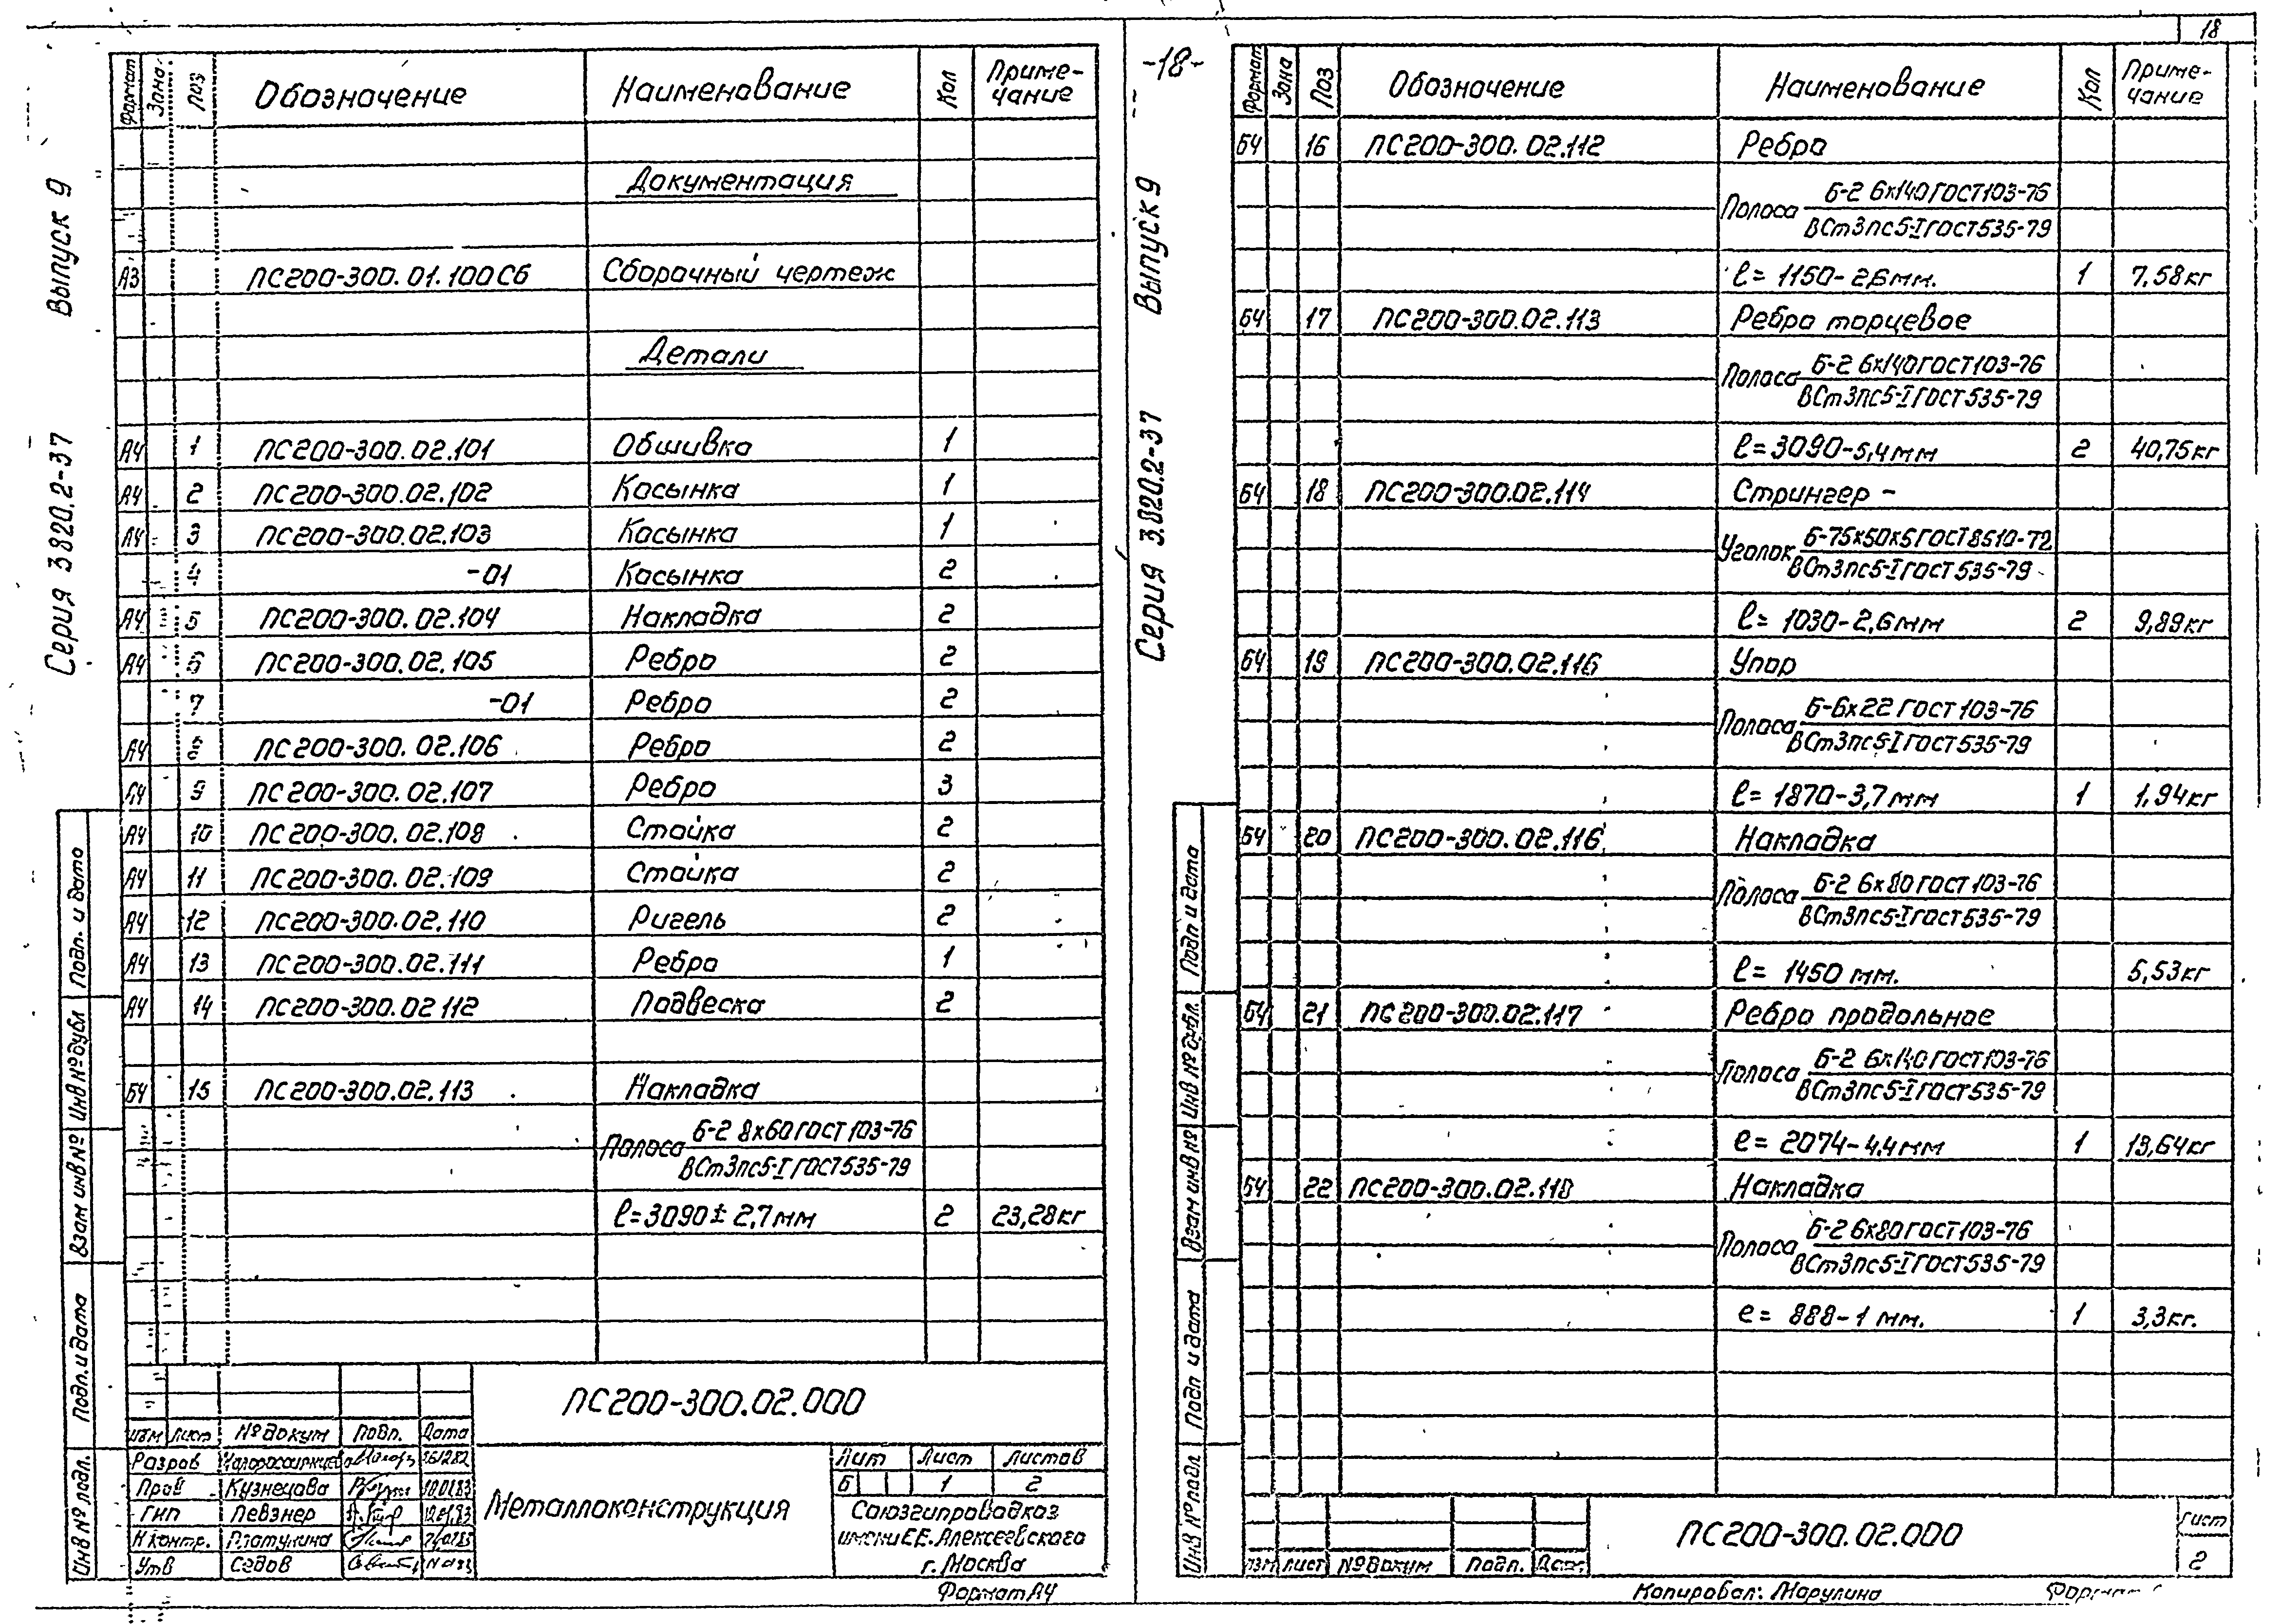 18
-18-
Выпуск 9
Серия 3.820.2-37
Формат Зона Поз Обозначение Наименование Кол Приме-
чание
Документация
А3 ПС200-300.01.100СБ Сборочный чертеж
Детали
А4 1 ПС200-300.02.101 Обшивка 1
А4 2 ПС200-300.02.102 Косынка 1
А4 3 ПС200-300.02.103 Косынка 1
4 -01 Косынка 2
А4 5 ПС200-300.02.104 Накладка 2
А4 6 ПС200-300.02.105 Ребро 2
7 -01 Ребро 2
А4 8 ПС200-300.02.106 Ребро 2
А4 9 ПС200-300.02.107 Ребро 3
А4 10 ПС200-300.02.108 Стойка 2
А4 11 ПС200-300.02.109 Стойка 2
А4 12 ПС200-300.02.110 Ригель 2
А4 13 ПС200-300.02.111 Ребро 1
А4 14 ПС200-300.02 112 Подвеска 2
БЧ 15 ПС200-300.02.113 Накладка
Полоса Б-2 8х60 ГОСТ 103-76
ВСт3пс5-I ГОСТ535-79
ℓ=3090± 2,7мм 2 23,28кг
Подп. и дата
Инв № дубл
Взам инв №
Подп. и дата
Инв № подл.
ПС200-300.02.000
Изм Лист № докум Подп. Дата
Разраб
Пров Кузнецова 10.01.83
ГИП Певзнер
Н контр. Платунина
Утв Седов
Металлоконструкция
Лит Лист Листов
Б 1 2
Союзгипроводхоз
имени Е.Е.Алексеевского
г. Москва
Формат А4
Выпуск 9
Серия 3.820.2-37
Формат Зона Поз Обозначение Наименование Кол Приме-
чание
БЧ 16 ПС200-300.02.112 Ребро
Полоса Б-2 6х140 ГОСТ103-76
ВСт3пс5-I ГОСТ535-79
ℓ= 1150-2,6мм. 1 7,58кг
БЧ 17 ПС200-300.02.113 Ребро торцевое
Полоса Б-2 6х140 ГОСТ103-76
ВСт3пс5-I ГОСТ535-79
ℓ=3090-5,4мм 2 40,75кг
БЧ 18 ПС200-300.02.114 Стрингер -
Уголок Б-75х50х5 ГОСТ8510-72
ВСт3пс5-I ГОСТ535-79
ℓ= 1030-2,6мм 2 9,89кг
БЧ 19 ПС200-300.02.116 Упор
Полоса Б-6х22 ГОСТ 103-76
ВСт3пс5-I ГОСТ535-79
ℓ= 1870-3,7мм 1 1,94кг
БЧ 20 ПС200-300.02.116 Накладка
Полоса Б-2 6х80 ГОСТ 103-76
ВСт3пс5-I ГОСТ535-79
ℓ= 1450 мм. 5,53кг
БЧ 21 ПС200-300.02.117 Ребро продольное
Полоса Б-2 6х140 ГОСТ103-76
ВСт3пс5-I ГОСТ535-79
е= 2074-4,4мм 1 13,64кг
БЧ 22 ПС200-300.02.118 Накладка
Полоса Б-2 6х80 ГОСТ103-76
ВСт3пс5-I ГОСТ535-79
е= 888-1 мм. 1 3,3кг.
Подп и дата
Инв № дубл.
Взам инв №
Подп и дата
Инв № подл
Изм Лист № докум Подп. Дата
ПС200-300.02.000
Лист
2
Копировал: Марулина
Формат